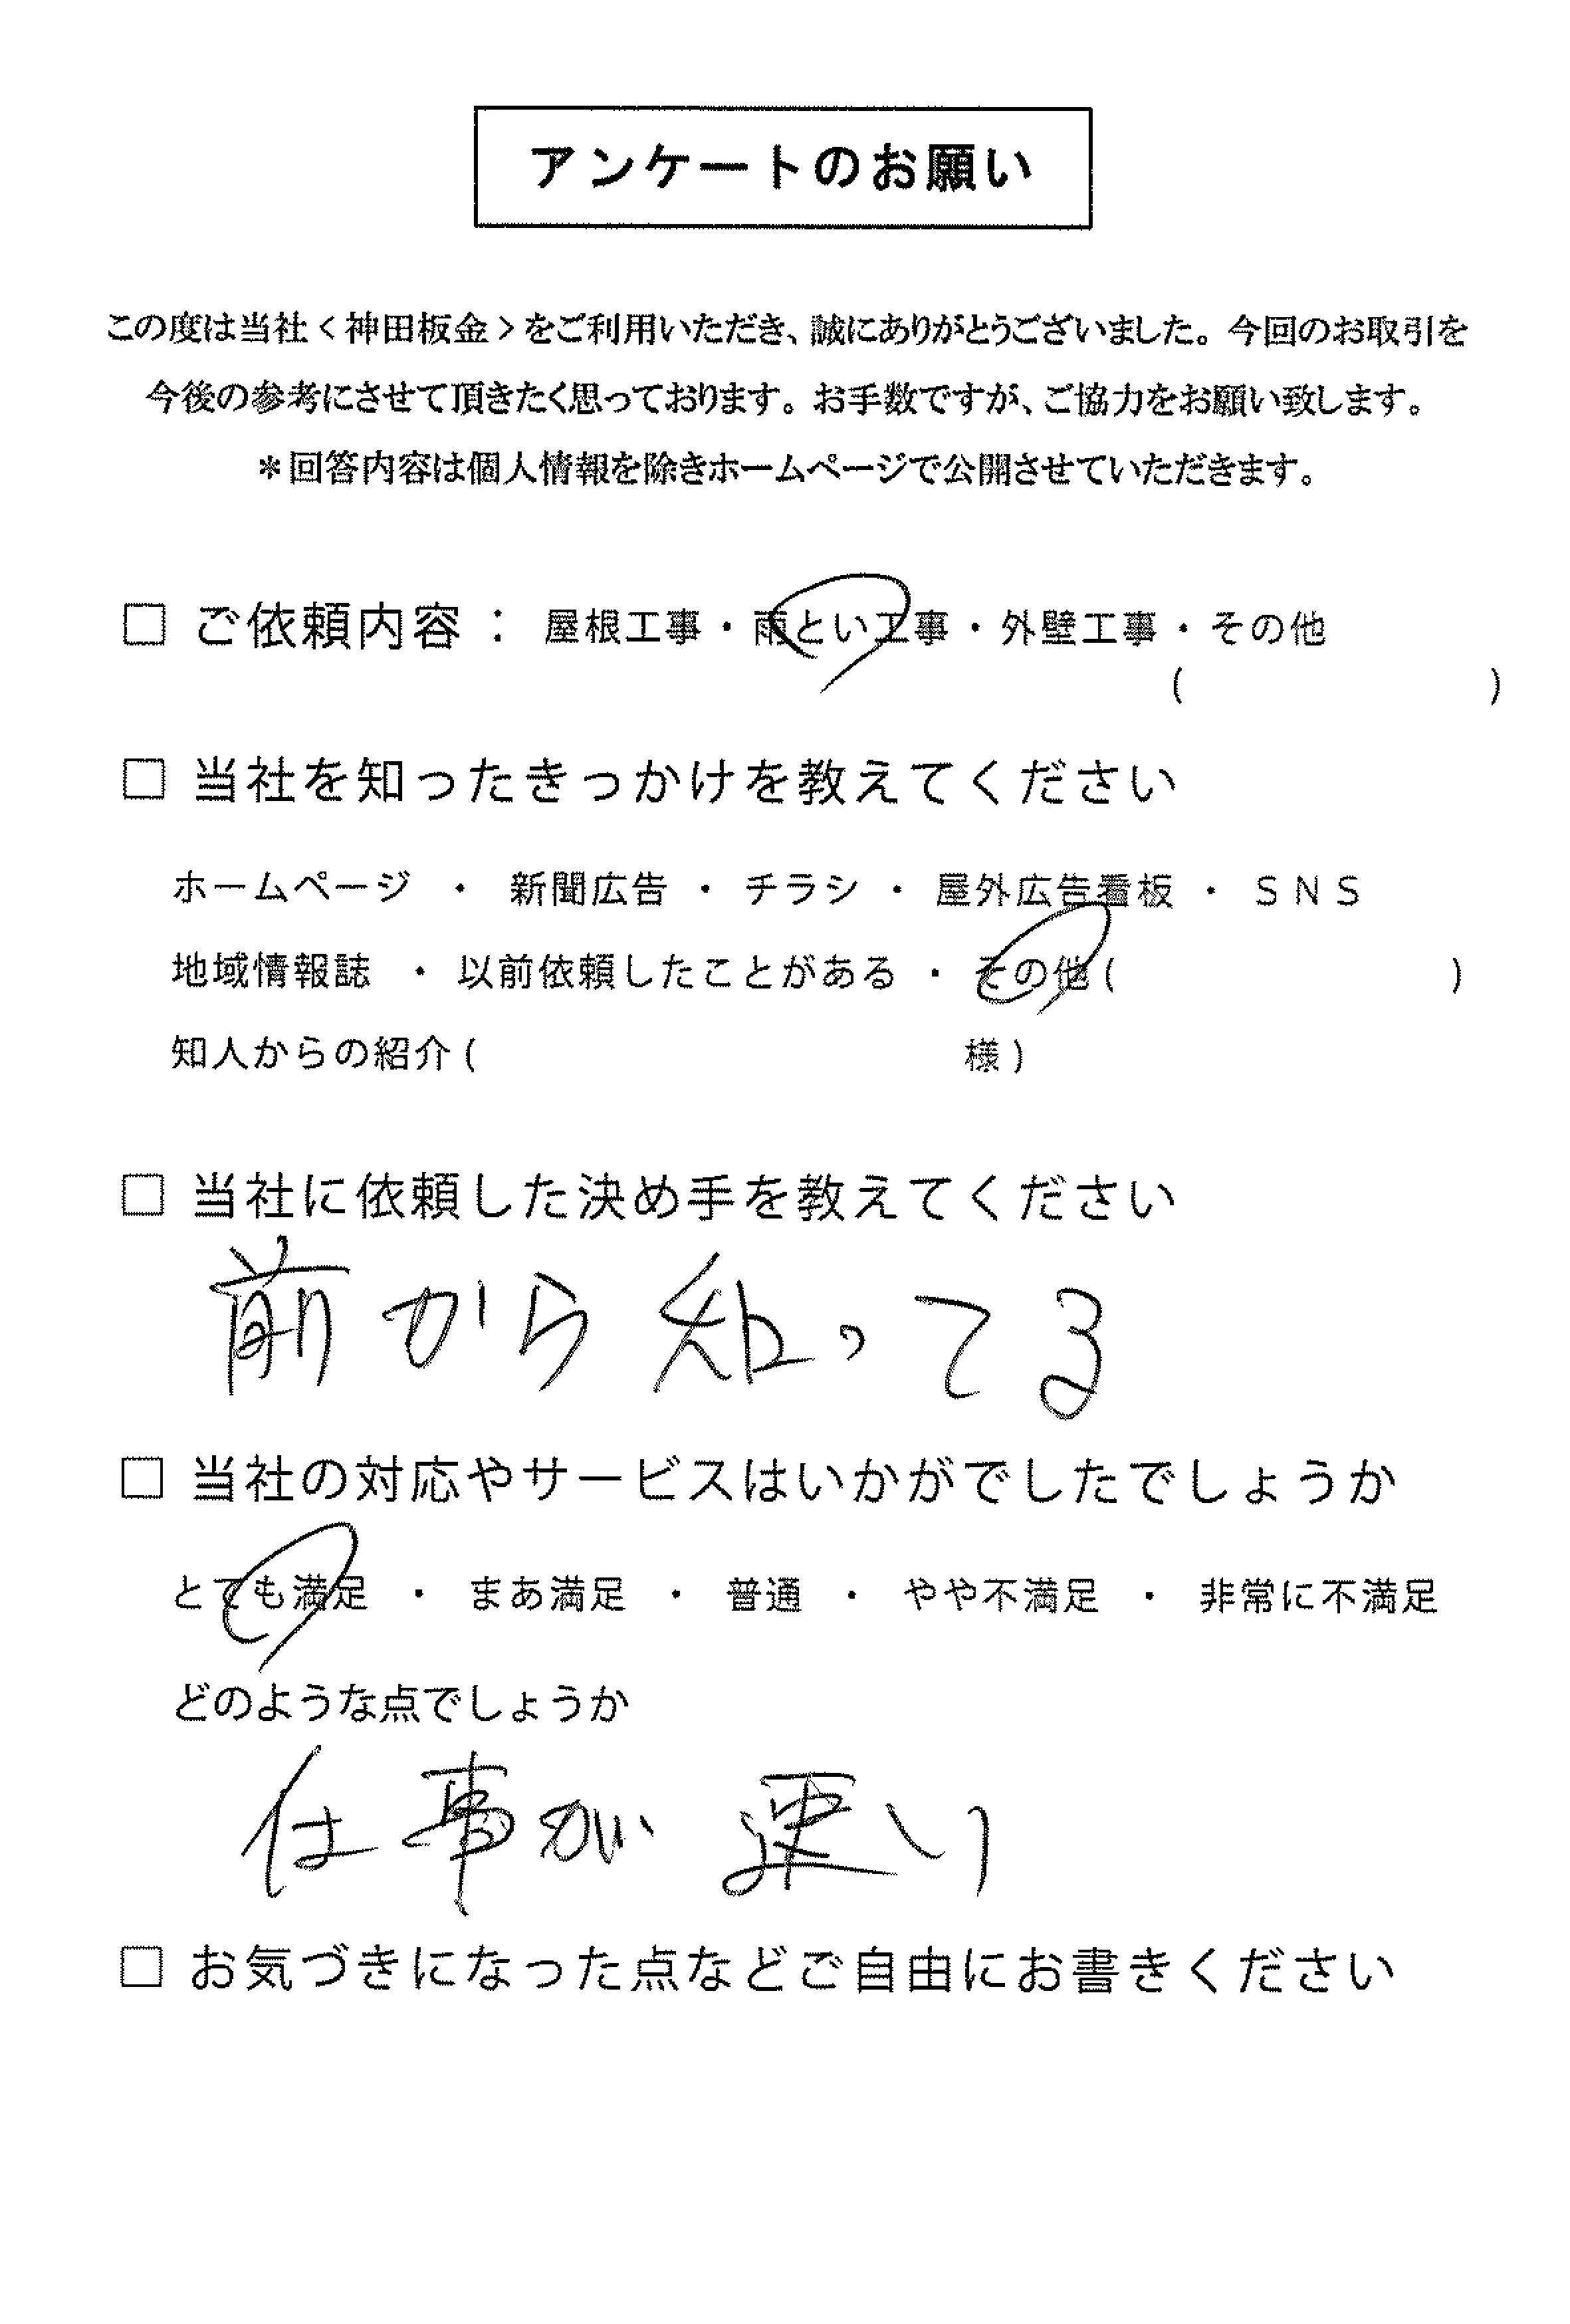 アンケートのお願い
この度は当社＜神田板金＞をご利用いただき、誠にありがとうございました。今回のお取引を
今後の参考にさせて頂きたく思っております。お手数ですが、ご協力をお願い致します。
＊回答内容は個人情報を除きホームページで公開させていただきます。
□ ご依頼内容： 屋根工事・雨とい工事・外壁工事・その他
( )
□ 当社を知ったきっかけを教えてください
ホームページ ・ 新聞広告 ・ チラシ ・ 屋外広告看板 ・ ＳＮＳ
地域情報誌 ・ 以前依頼したことがある ・ その他( )
知人からの紹介( 様)
□ 当社に依頼した決め手を教えてください
前から知ってる
□ 当社の対応やサービスはいかがでしたでしょうか
とても満足 ・ まあ満足 ・ 普通 ・ やや不満足 ・ 非常に不満足
どのような点でしょうか
仕事が速い
□ お気づきになった点などご自由にお書きください